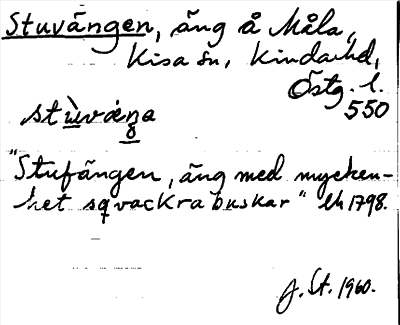 Stuvängen, äng å Måla,
Kisa sn, Kinda hd,
Östg. l.
550
"Stufängen, äng med mycken-
het sqvackra buskar" lh 1798.
J. St. 1960.